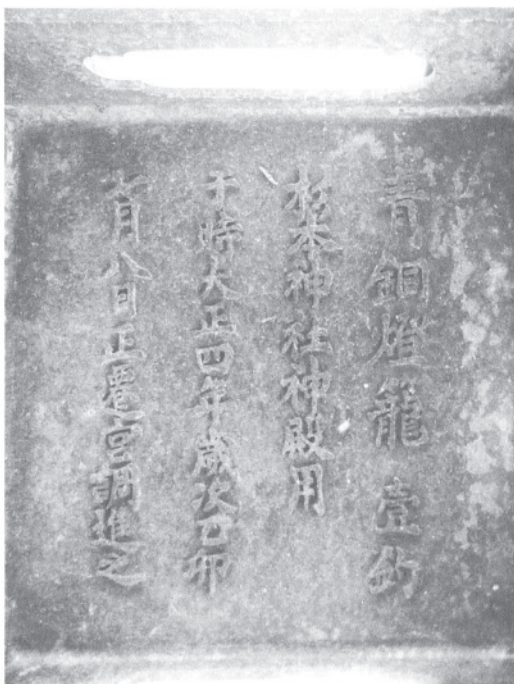 青銅燈籠 壹釣
松本神社神殿用
于時大正四年歳次乙卯
七月八日正遷宮調進之